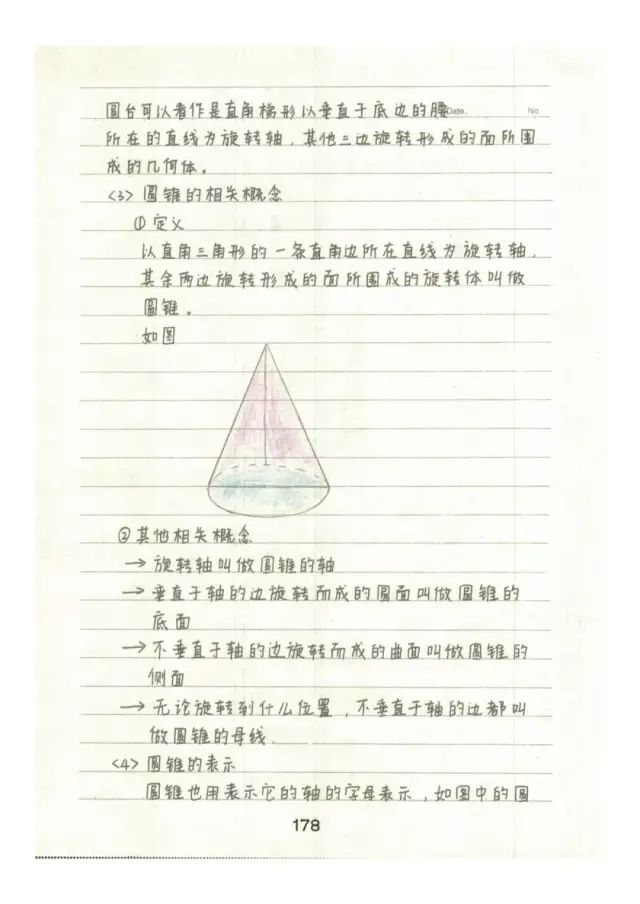 圆台可以看作是直角梯形以垂直于底边的腰Date. No.
所在的直线为旋转轴，其他三边旋转形成的面所围
成的几何体。
<3> 圆锥的相关概念
① 定义
以直角三角形的一条直角边所在直线为旋转轴，
其余两边旋转形成的面所围成的旋转体叫做
圆锥。
如图
② 其他相关概念
→ 旋转轴叫做圆锥的轴
→ 垂直于轴的边旋转而成的圆面叫做圆锥的
底面
→ 不垂直于轴的边旋转而成的曲面叫做圆锥的
侧面
→ 无论旋转到什么位置，不垂直于轴的边都叫
做圆锥的母线.
<4> 圆锥的表示
圆锥也用表示它的轴的字母表示，如图中的圆
178